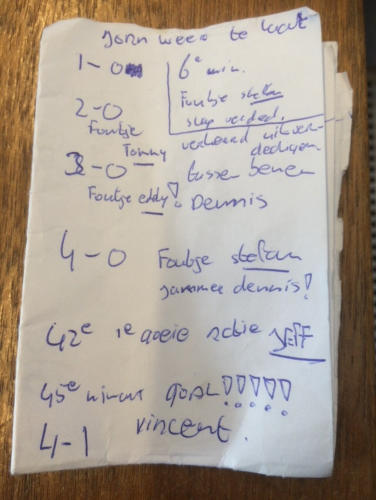 Jorn weer te laat
1-0 6e min.
Foutje stefan
slap verded.
2-0
Foutje
Tommy
verkeerd uitver-
dedigen
3-0 tussen benen
Foutje eddy! Dennis
4-0 Foutje stefan
jammer dennis!
42e 1e goeie actie JEFF
45e minuut GOAL!!!!!
4-1 vincent.